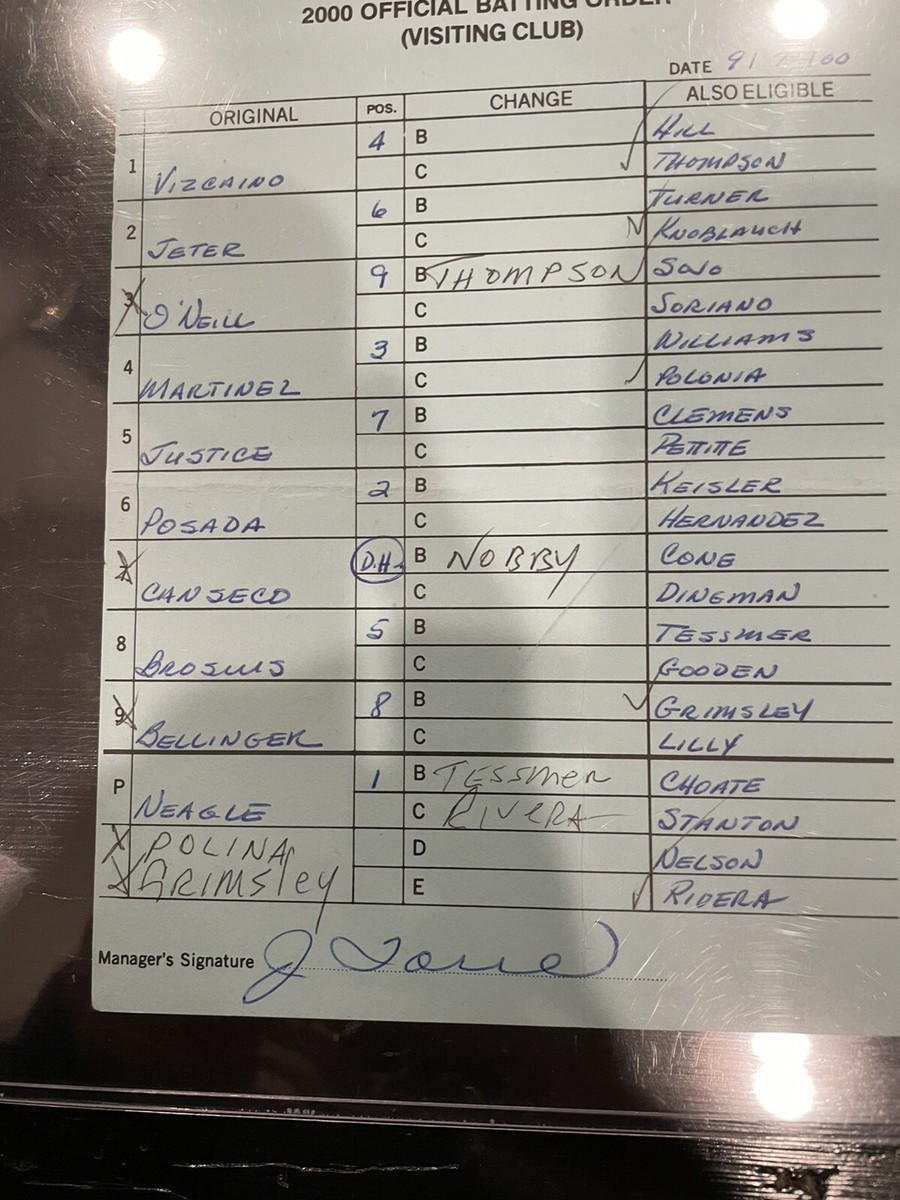 2000 OFFICIAL BATTING ORDER
(VISITING CLUB)
DATE 9/ 7 /00
ORIGINAL POS. CHANGE ALSO ELIGIBLE
1 VIZCAINO 4 B HILL
C THOMPSON
2 JETER 6 B TURNER
C KNOBLAUCH
3 O'NEILL 9 B THOMPSON SOJO
C SORIANO
4 MARTINEZ 3 B WILLIAMS
C POLONIA
5 JUSTICE 7 B CLEMENS
C PETTITE
6 POSADA 2 B KEISLER
C HERNANDEZ
7 CANSECO D.H. B NOBBY CONE
C DINGMAN
8 BROSIUS 5 B TESSMER
C GOODEN
9 BELLINGER 8 B GRIMSLEY
C LILLY
P NEAGLE 1 B TESSMER CHOATE
C RIVERA STANTON
X POLINA D NELSON
X GRIMSLEY E RIVERA
Manager's Signature J Torre